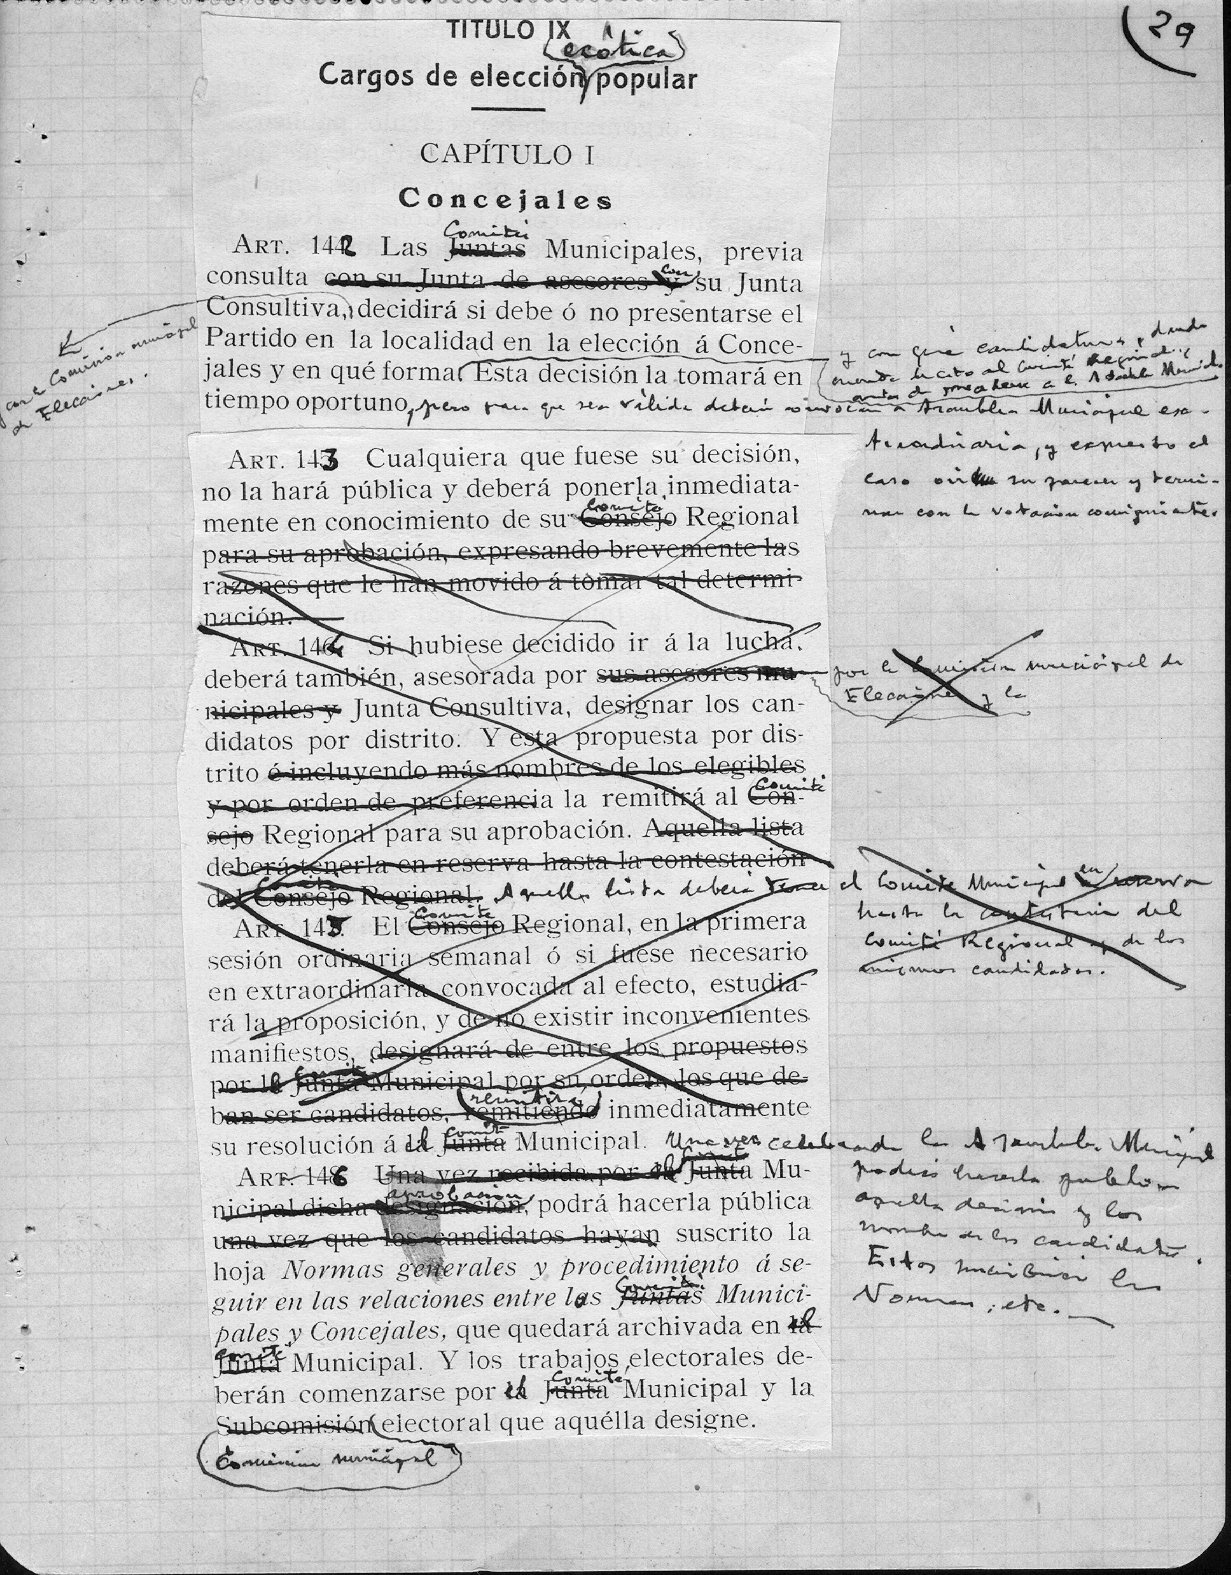 29
TITULO IX
exótica
Cargos de elección popular
CAPÍTULO I
Concejales
Comités
ART. 142 Las Juntas Municipales, previa
consulta con su Junta de asesores y con su Junta
Consultiva, decidirá si debe ó no presentarse el
Partido en la localidad en la elección á Conce-
jales y en qué forma. Esta decisión la tomará en
tiempo oportuno, pero para que sea válida deberán convocar a Asamblea Municipal ex-
traordinaria, y expuesto el
caso oir su parecer y termi-
nar con la votación consiguiente.
y con qué candidaturas, dando
cuenta al Comité Regional
antes de a la Asamblea Municipal
con la Comisión municipal
de Elecciones.
ART. 143 Cualquiera que fuese su decisión,
no la hará pública y deberá ponerla inmediata-
Comité
mente en conocimiento de su Consejo Regional
para su aprobación, expresando brevemente las
razones que le han movido á tomar tal determi-
nación.
ART. 144 Si hubiese decidido ir á la lucha,
deberá también, asesorada por sus asesores mu-
por la Comisión municipal de
Elecciones y la
nicipales y Junta Consultiva, designar los can-
didatos por distrito. Y esta propuesta por dis-
trito ó incluyendo más nombres de los elegibles
Comité
y por orden de preferencia la remitirá al Con-
sejo Regional para su aprobación. Aquella lista
deberá tenerla en reserva hasta la contestación
Comité
del Consejo Regional. Aquella lista deberá tener el Comité Municipal en reserva
hasta la contestación del
Comité Regional y de los
mismos candidatos.
Comité
ART. 145 El Consejo Regional, en la primera
sesión ordinaria semanal ó si fuese necesario
en extraordinaria convocada al efecto, estudia-
rá la proposición, y de no existir inconvenientes
manifiestos, designará de entre los propuestos
Comité
por el Junta Municipal por su orden, los que de-
remitirá
ban ser candidatos, remitiendo inmediatamente
Comité
su resolución á el Junta Municipal. Una vez celebrada la Asamblea Municipal
podrá hacerla pública
aquella decisión y los
nombres de los candidatos.
Estos suscribirán las
Normas, etc.
Comité
ART. 146 Una vez recibida por el Junta Mu-
aprobación
nicipal dicha designación, podrá hacerla pública
una vez que los candidatos hayan suscrito la
hoja Normas generales y procedimiento á se-
Comités
guir en las relaciones entre los Juntas Munici-
pales y Concejales, que quedará archivada en el
Comité
Junta Municipal. Y los trabajos electorales de-
Comité
berán comenzarse por el Junta Municipal y la
Subcomisión electoral que aquélla designe.
Comisión municipal